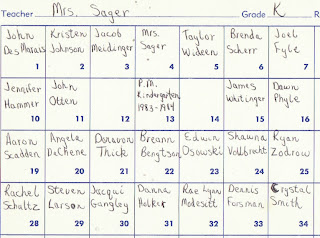 Teacher Mrs. Sager Grade K R
John Kristen Jacob Mrs. Taylor Brenda Joel
DesMarais Johnson Meidinger Sager Wideen Scherr Fyle
1 2 3 4 5 6 7
Jennifer John P.M. James Dawn
Hammer Otten Kindergarten Whitinger Phyle
1983-1984
10 11 12 13 14 15 16
Aaron Angela Donavon Breann Edwin Shawna Ryan
Scadden DeChene Thick Bengtson Osowski Vollbrecht Zodrow
19 20 21 22 23 24 25
Rachel Steven Jacqui Danna Rae Lynn Dennis Crystal
Schultz Larson Gangley Helker Modesitt Forsman Smith
28 29 30 31 32 33 34